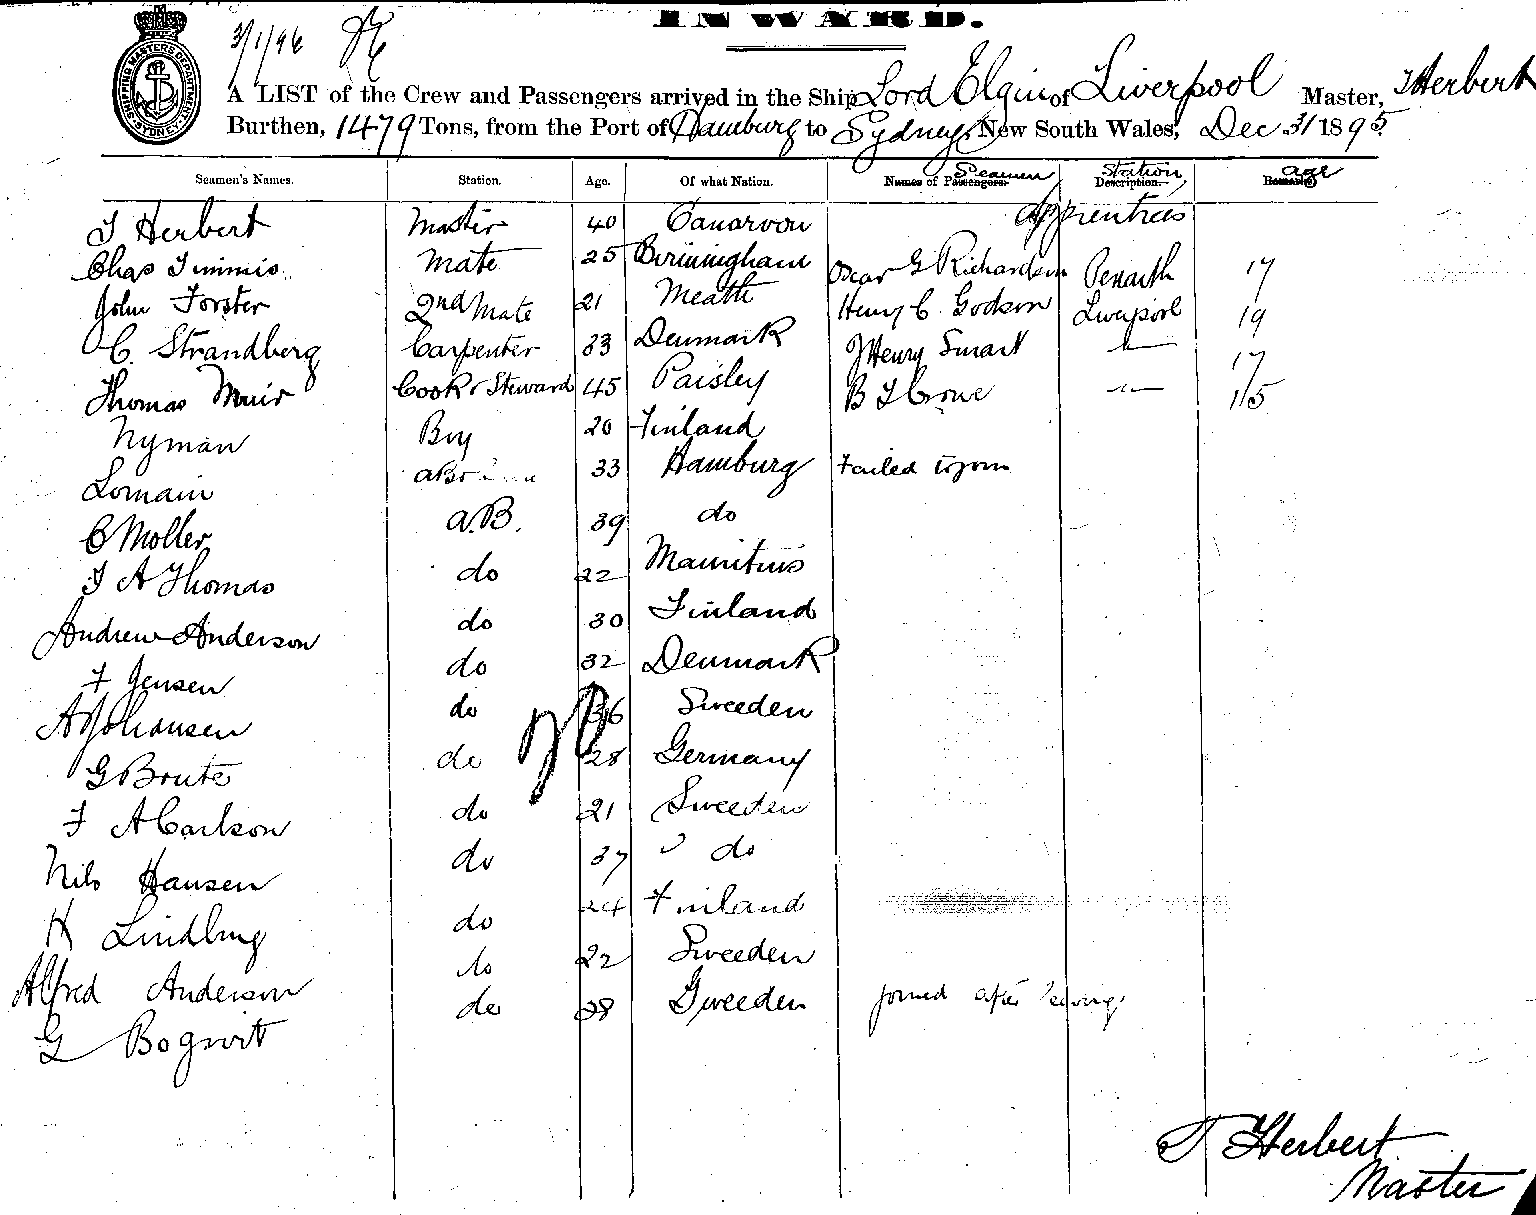 INWARD.
3/1/96
SHIPPING MASTERS DEPARTMENT SYDNEY
A LIST of the Crew and Passengers arrived in the Ship Lord Elgin of Liverpool Master, T Herbert
Burthen, 1479 Tons, from the Port of Hamburg to Sydney, New South Wales, Dec 31 1895.
Seamen's Names. Station. Age. Of what Nation. Names of Passengers. Seamen Description. Station Remarks. age
T Herbert Master 40 Canarvon Apprentices
Chas Timmis Mate 25 Birminigham Oscar G Richardson Penarth 17
John Forster 2nd Mate 21 Meath Henry C. Godson Liverpool 19
C. Strandberg Carpenter 33 Denmark J Henry Smart — 17
Thomas Muir Cook & Steward 45 Paisley B T Crowe — 15
Nyman Boy 20 Finland
Lomain 33 Hamburg Failed to join
C Moller A.B. 39 do
T A Thomas do 22 Mauritius
Andrew Anderson do 30 Finland
F Jensen do 32 Denmark
A Johansen do 36 Sweeden
G Brute do 28 Germany
F A Carlson do 21 Sweeden
Nils Hansen do 37 do
H Lindbug do 24 Finland
Alfred Anderson do 22 Sweeden
G Bogsvit do 28 Sweeden joined after
T Herbert
Master